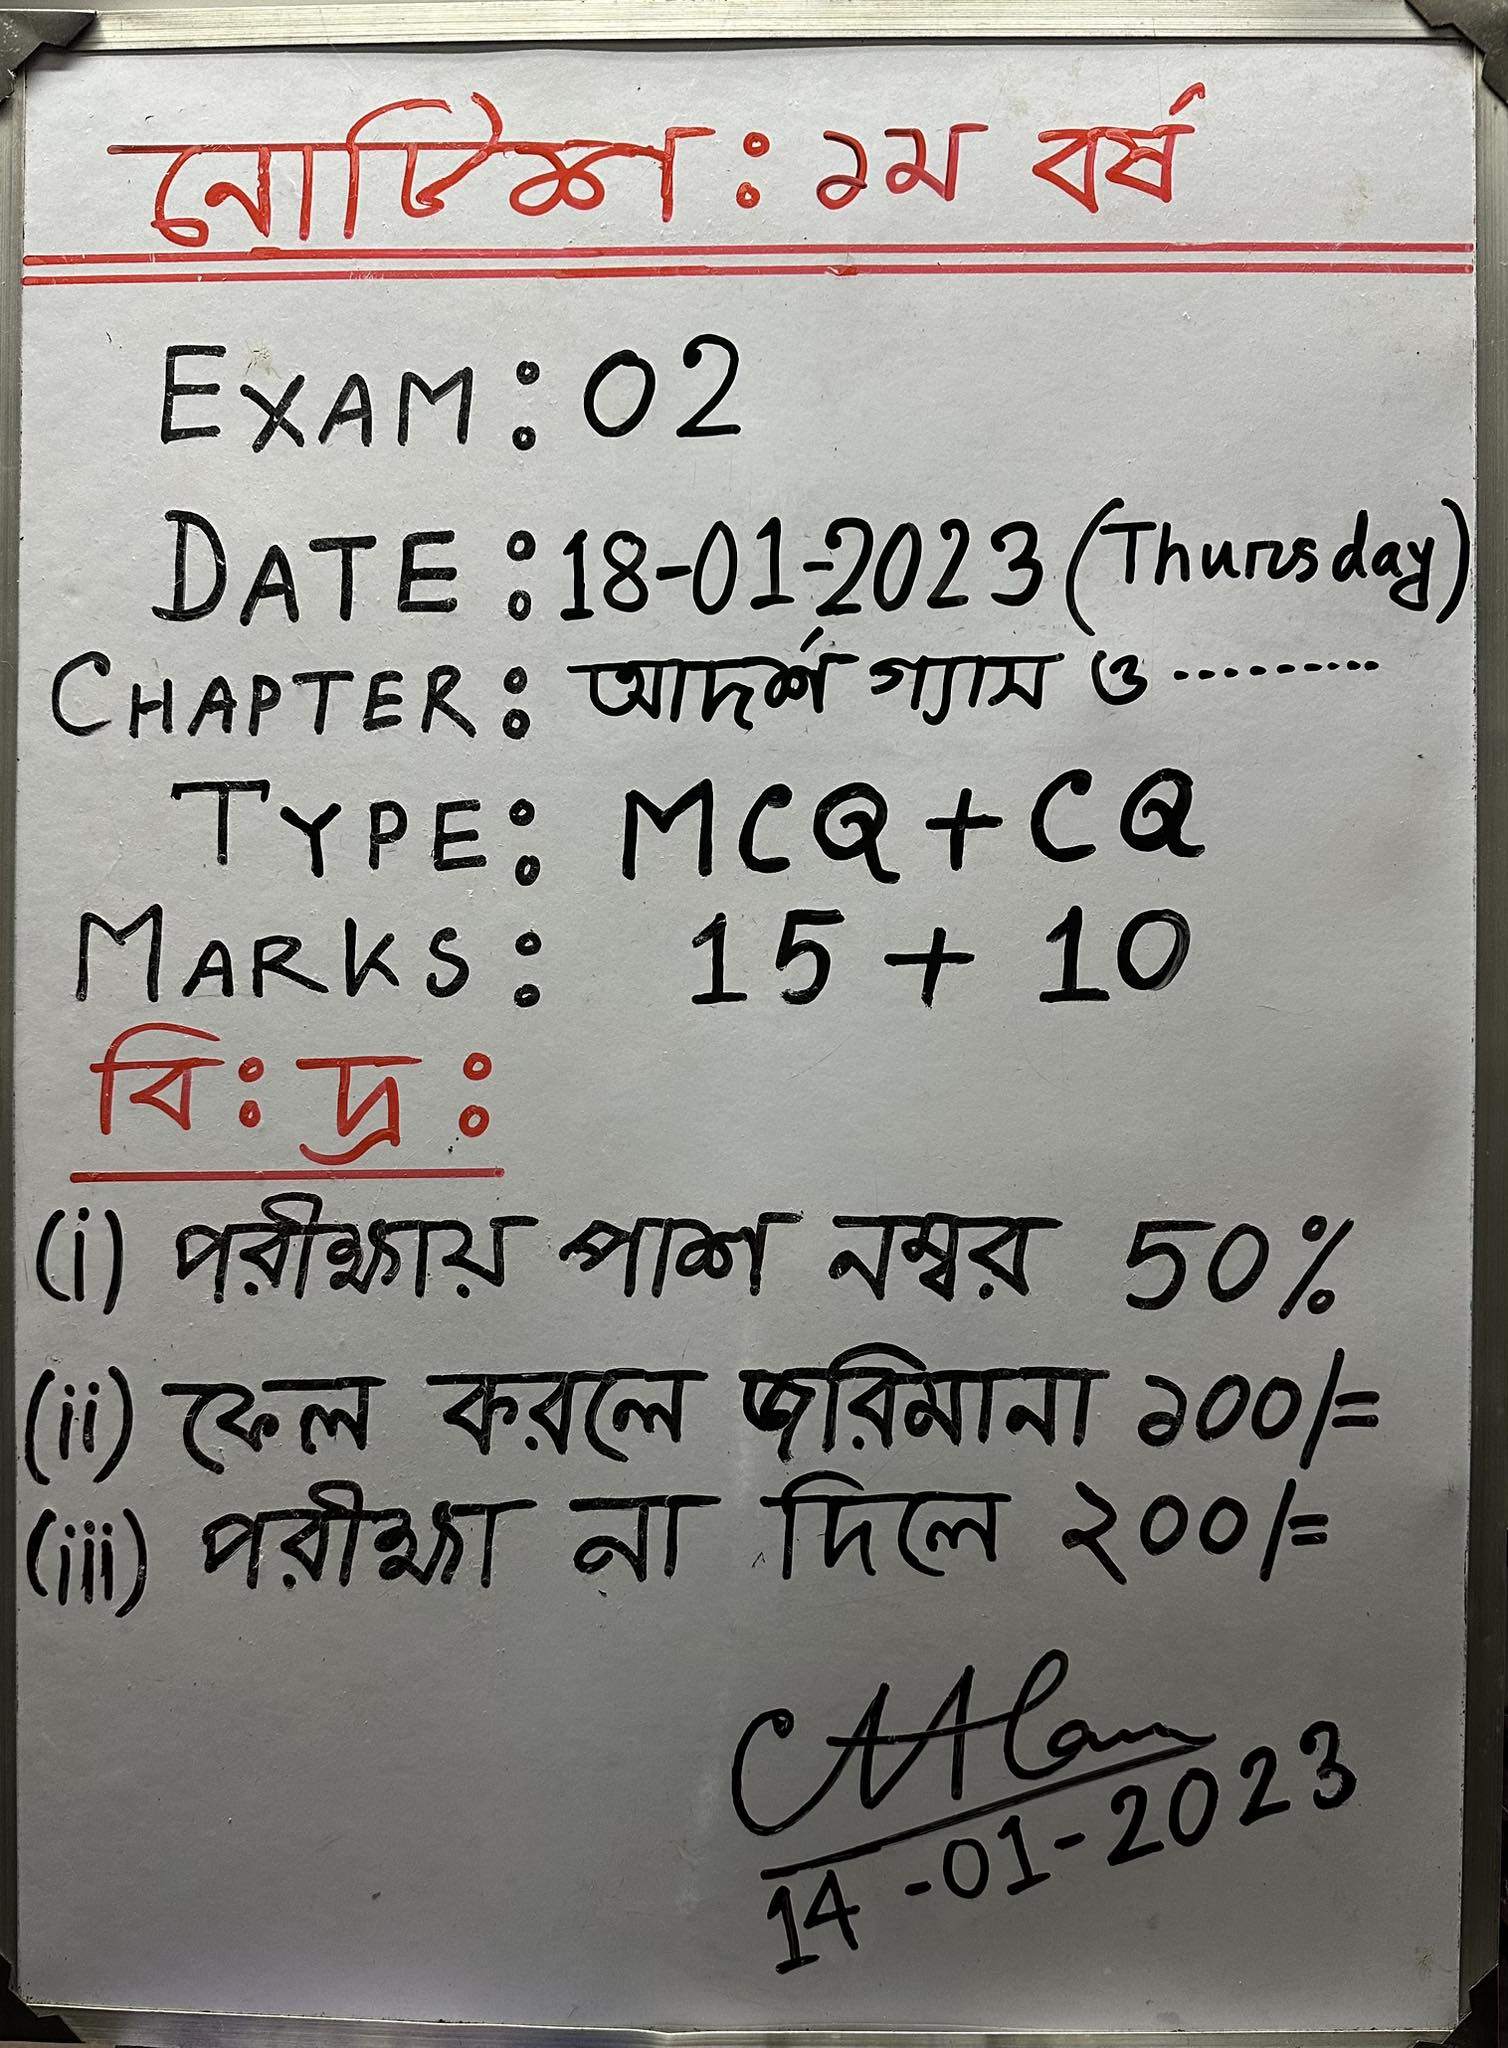 নোটিশ : ১ম বর্ষ
EXAM : 02
DATE : 18-01-2023 (Thursday)
CHAPTER : আদর্শ গ্যাস ও .........
TYPE : MCQ + CQ
MARKS : 15 + 10
বি : দ্র :
(i) পরীক্ষায় পাশ নম্বর 50%
(ii) ফেল করলে জরিমানা ১০০/=
(iii) পরীক্ষা না দিলে ২০০/=
14-01-2023